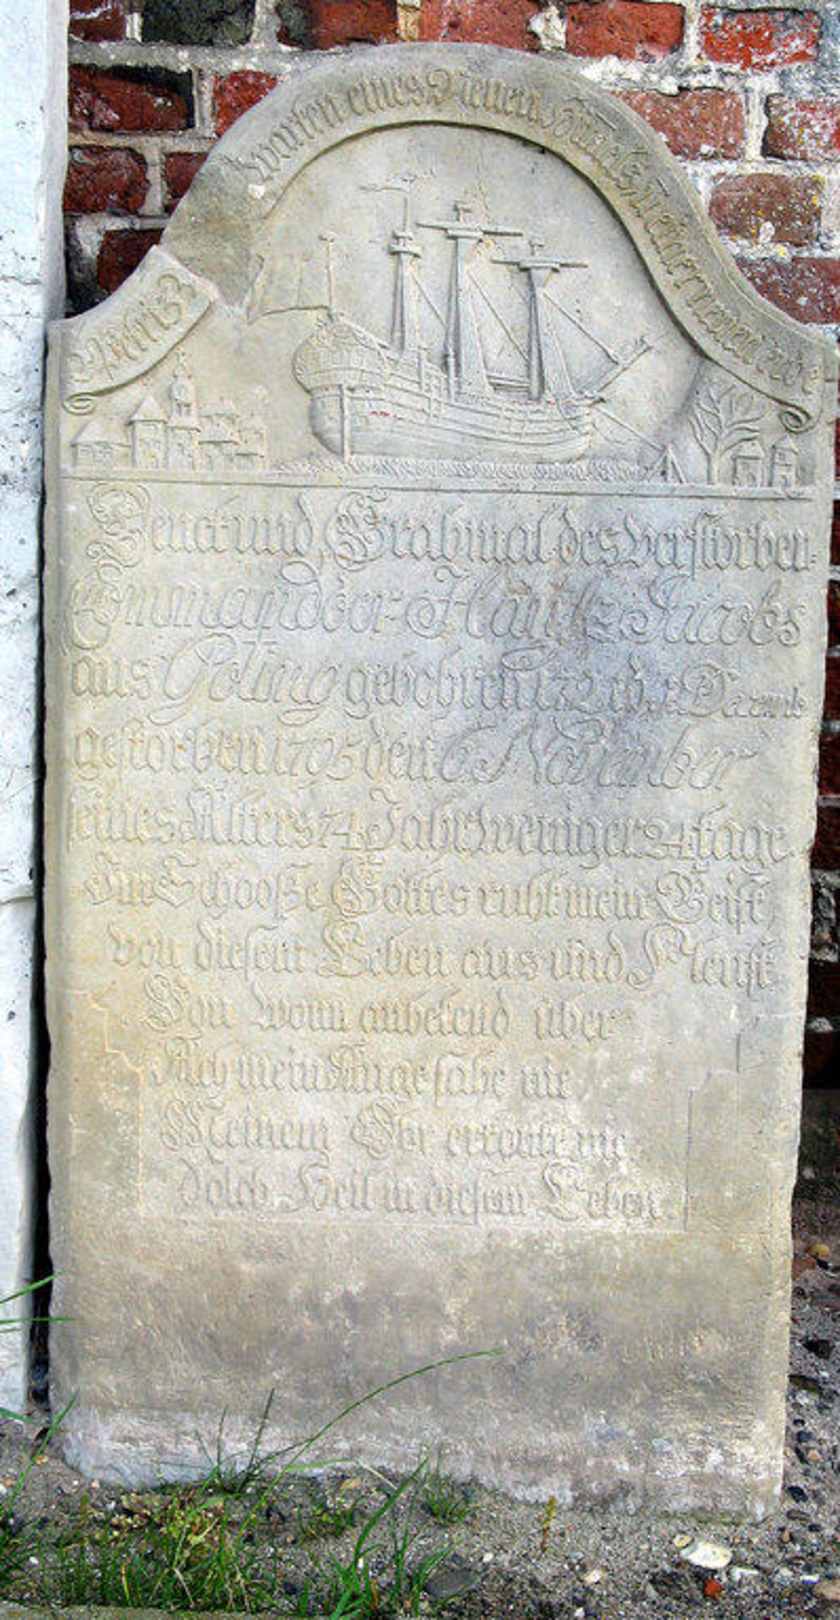 2 Petri 3 warten eines Neuen Himels u einer neuen erde
Denck und Grabmal des verstorben
Commandöer Hans Jacobs
aus Göting gebohren 1721 d. 1 Decemb
gestorben 1795 den 6 November
seines Alters 74 Jahr weniger 24 tage
Im Schooße Gottes ruht mein Geist,
von diesem Leben aus und
Von wonn anbetend über
Ach mein Auge sahe nie
Meinem Ohr erthönte nie
solch Heil in diesem Leben.